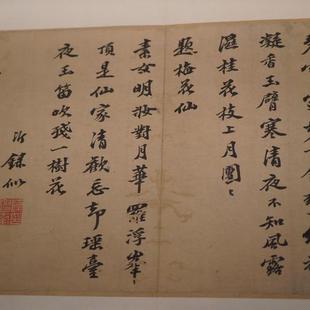 凝香玉臂寒清夜不知風露
濕桂花枝上月團〻
題梅花仙
素女明妝對月華羅浮峯〻
頂是仙家清歡忘却瑤臺
夜玉笛吹殘一樹花
錄似